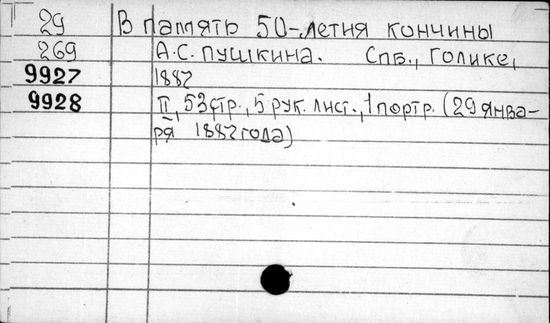 29 В память 50-летия кончины
269 А.С. Пушкина. Спб., Голике,
9927 1887
9928 II, 53 стр., 5 рук. лист., 1 портр. (29 янва-
ря 1887 года)